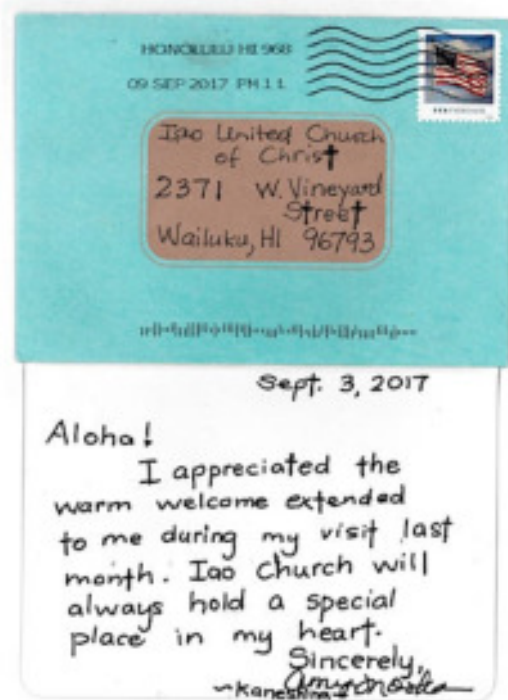 HONOLULU HI 968
09 SEP 2017 PM 1 1
Iao United Church
of Christ
2371 W. Vineyard
Street
Wailuku, HI 96793
Sept. 3, 2017
Aloha!
I appreciated the
warm welcome extended
to me during my visit last
month. Iao Church will
always hold a special
place in my heart.
Sincerely,